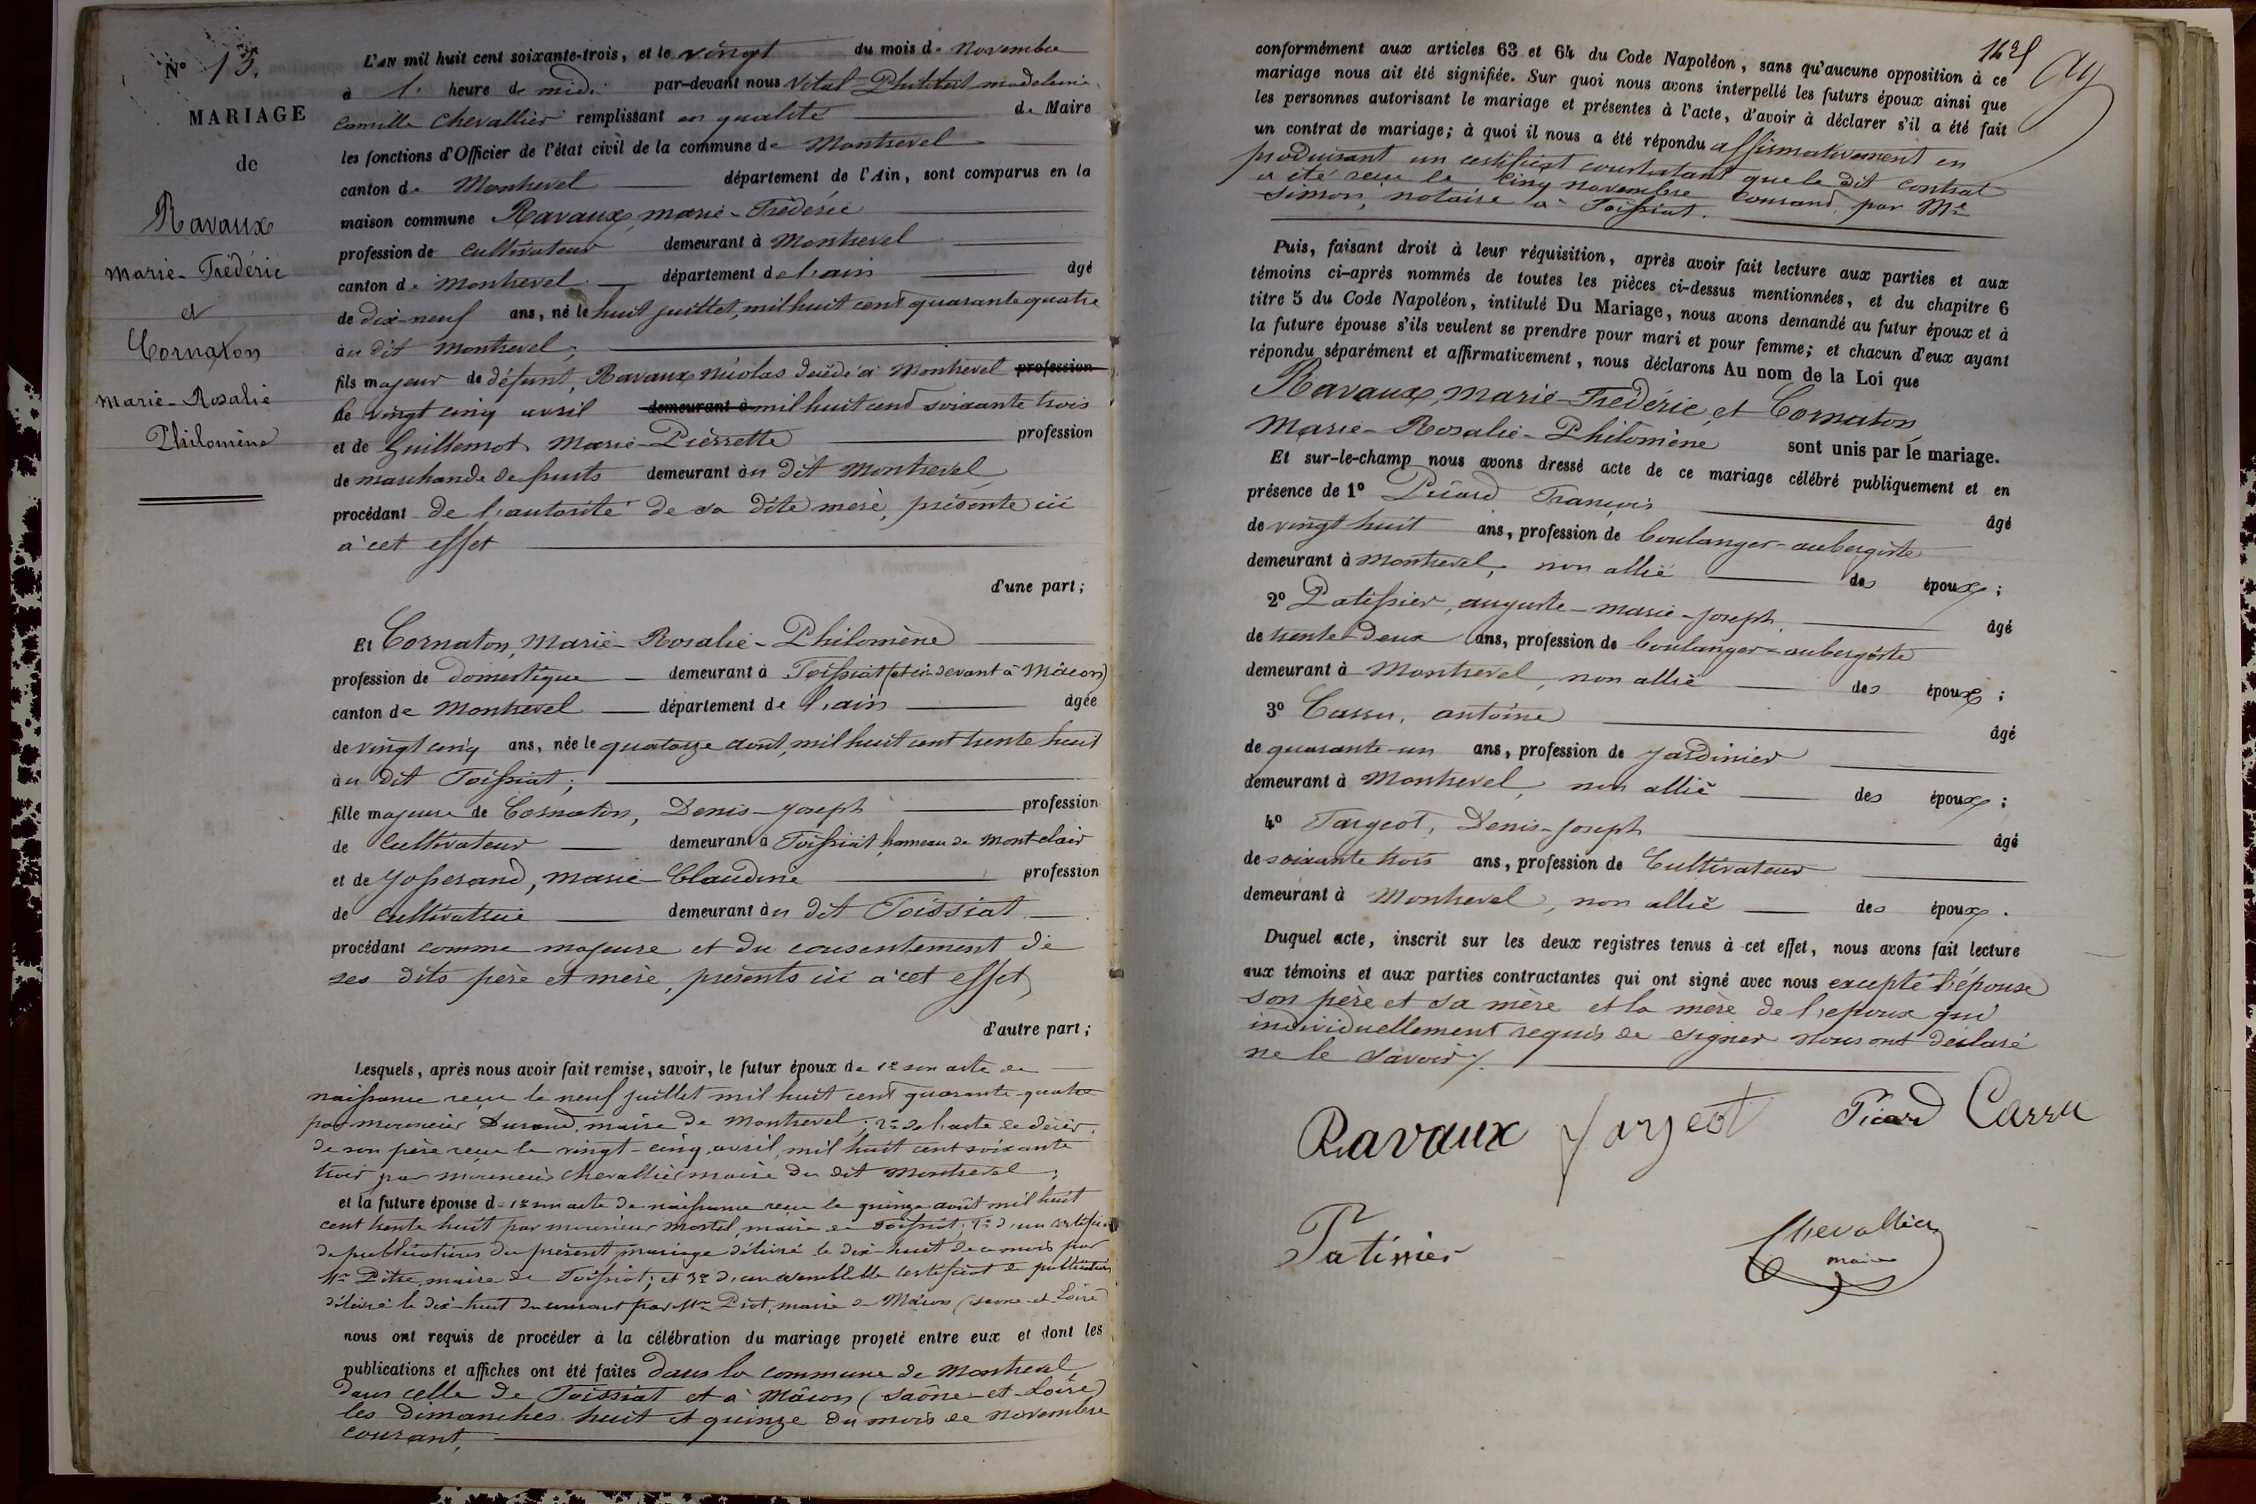 N° 13.
MARIAGE
de
Ravaux
Marie-Frédéric
et
Cornaton
Marie-Rosalie
Philomène
L'AN mil huit cent soixante-trois, et le vingt du mois de Novembre
à 1. heure de midi par-devant nous Vital Philibert Madeleine
Camille Chevallier remplissant en qualité de Maire
les fonctions d'Officier de l'état civil de la commune de Montrevel
canton de Montrevel département de l'Ain, sont comparus en la
maison commune Ravaux, Marie-Frédéric
profession de cultivateur demeurant à Montrevel
canton de Montrevel département de l'ain âgé
de dix-neuf ans, né le huit juillet, mil huit cent quarante quatre
au dit Montrevel;
fils majeur de défunt, Ravaux Nicolas décédé à Montrevel profession
le vingt cinq avril demeurant à mil huit cent soixante trois
et de Guillemot Marie-Pierrette profession
de marchande de fruits demeurant au dit Montrevel
procédant de l'autorité de sa dite mère, présente ici
à cet effet
d'une part;
Et Cornaton, Marie-Rosalie-Philomène
profession de domestique demeurant à Foissiat (et ci-devant à Mâcon)
canton de Montrevel département de l'ain âgée
de vingt cinq ans, née le quatorze août, mil huit cent trente huit
au dit Foissiat;
fille majeure de Cornaton, Denis-Joseph profession
de Cultivateur demeurant à Foissiat, hameau de Montclair
et de Josserand, Marie-Claudine profession
de cultivatrice demeurant au dit Foissiat
procédant comme majeure et du consentement de
ses dits père et mère, présents ici à cet effet,
d'autre part;
Lesquels, après nous avoir fait remise, savoir, le futur époux de 1° son acte de
naissance reçu le neuf juillet mil huit cent quarante-quatre
par monsieur Durand, maire de Montrevel; 2° de l'acte de décès
de son père reçu le vingt-cinq avril, mil huit cent soixante
trois par monsieur Chevallier maire du dit Montrevel;
et la future épouse de 1° son acte de naissance reçu le quinze août mil huit
cent trente huit par monsieur maire de Foissiat; 2° d'un certificat
de publications du présent mariage délivré le dix-huit de ce mois par
Mr Pitre, maire de Foissiat; et 3° d'un semblable certificat de publications
délivré le dix-huit du courant par Mr maire de Mâcon (Saône-et-Loire)
nous ont requis de procéder à la célébration du mariage projeté entre eux et dont les
publications et affiches ont été faites dans la commune de Montrevel
dans celle de Foissiat et à Mâcon (Saône-et-Loire)
les dimanches huit et quinze du mois de novembre
courant,
conformément aux articles 63 et 64 du Code Napoléon, sans qu'aucune opposition à ce
mariage nous ait été signifiée. Sur quoi nous avons interpellé les futurs époux ainsi que
les personnes autorisant le mariage et présentes à l'acte, d'avoir à déclarer s'il a été fait
un contrat de mariage; à quoi il nous a été répondu affirmativement en
produisant un certificat constatant que le dit contrat
a été reçu le cinq novembre courant, par Me
Simon, notaire à Foissiat.
Puis, faisant droit à leur réquisition, après avoir fait lecture aux parties et aux
témoins ci-après nommés de toutes les pièces ci-dessus mentionnées, et du chapitre 6
titre 5 du Code Napoléon, intitulé Du Mariage, nous avons demandé au futur époux et à
la future épouse s'ils veulent se prendre pour mari et pour femme; et chacun d'eux ayant
répondu séparément et affirmativement, nous déclarons Au nom de la Loi que
Ravaux, Marie-Frédéric, et Cornaton,
Marie-Rosalie-Philomène sont unis par le mariage.
Et sur-le-champ nous avons dressé acte de ce mariage célébré publiquement et en
présence de 1° Picard François âgé
de vingt huit ans, profession de boulanger-aubergiste
demeurant à Montrevel, non allié des époux;
2° Patissier, auguste-marie-joseph âgé
de trente-deux ans, profession de boulanger-aubergiste
demeurant à Montrevel, non allié des époux;
3° Carru, antoine âgé
de quarante-un ans, profession de Jardinier
demeurant à Montrevel, non allié des époux;
4° Fargeot, Denis-Joseph âgé
de soixante trois ans, profession de Cultivateur
demeurant à Montrevel, non allié des époux.
Duquel acte, inscrit sur les deux registres tenus à cet effet, nous avons fait lecture
aux témoins et aux parties contractantes qui ont signé avec nous excepté l'épouse
son père et sa mère et la mère de l'époux qui
individuellement requis de signer nous ont déclaré
ne le savoir.
Ravaux fargeot Picard Carru
Patissier
Chevallier
maire